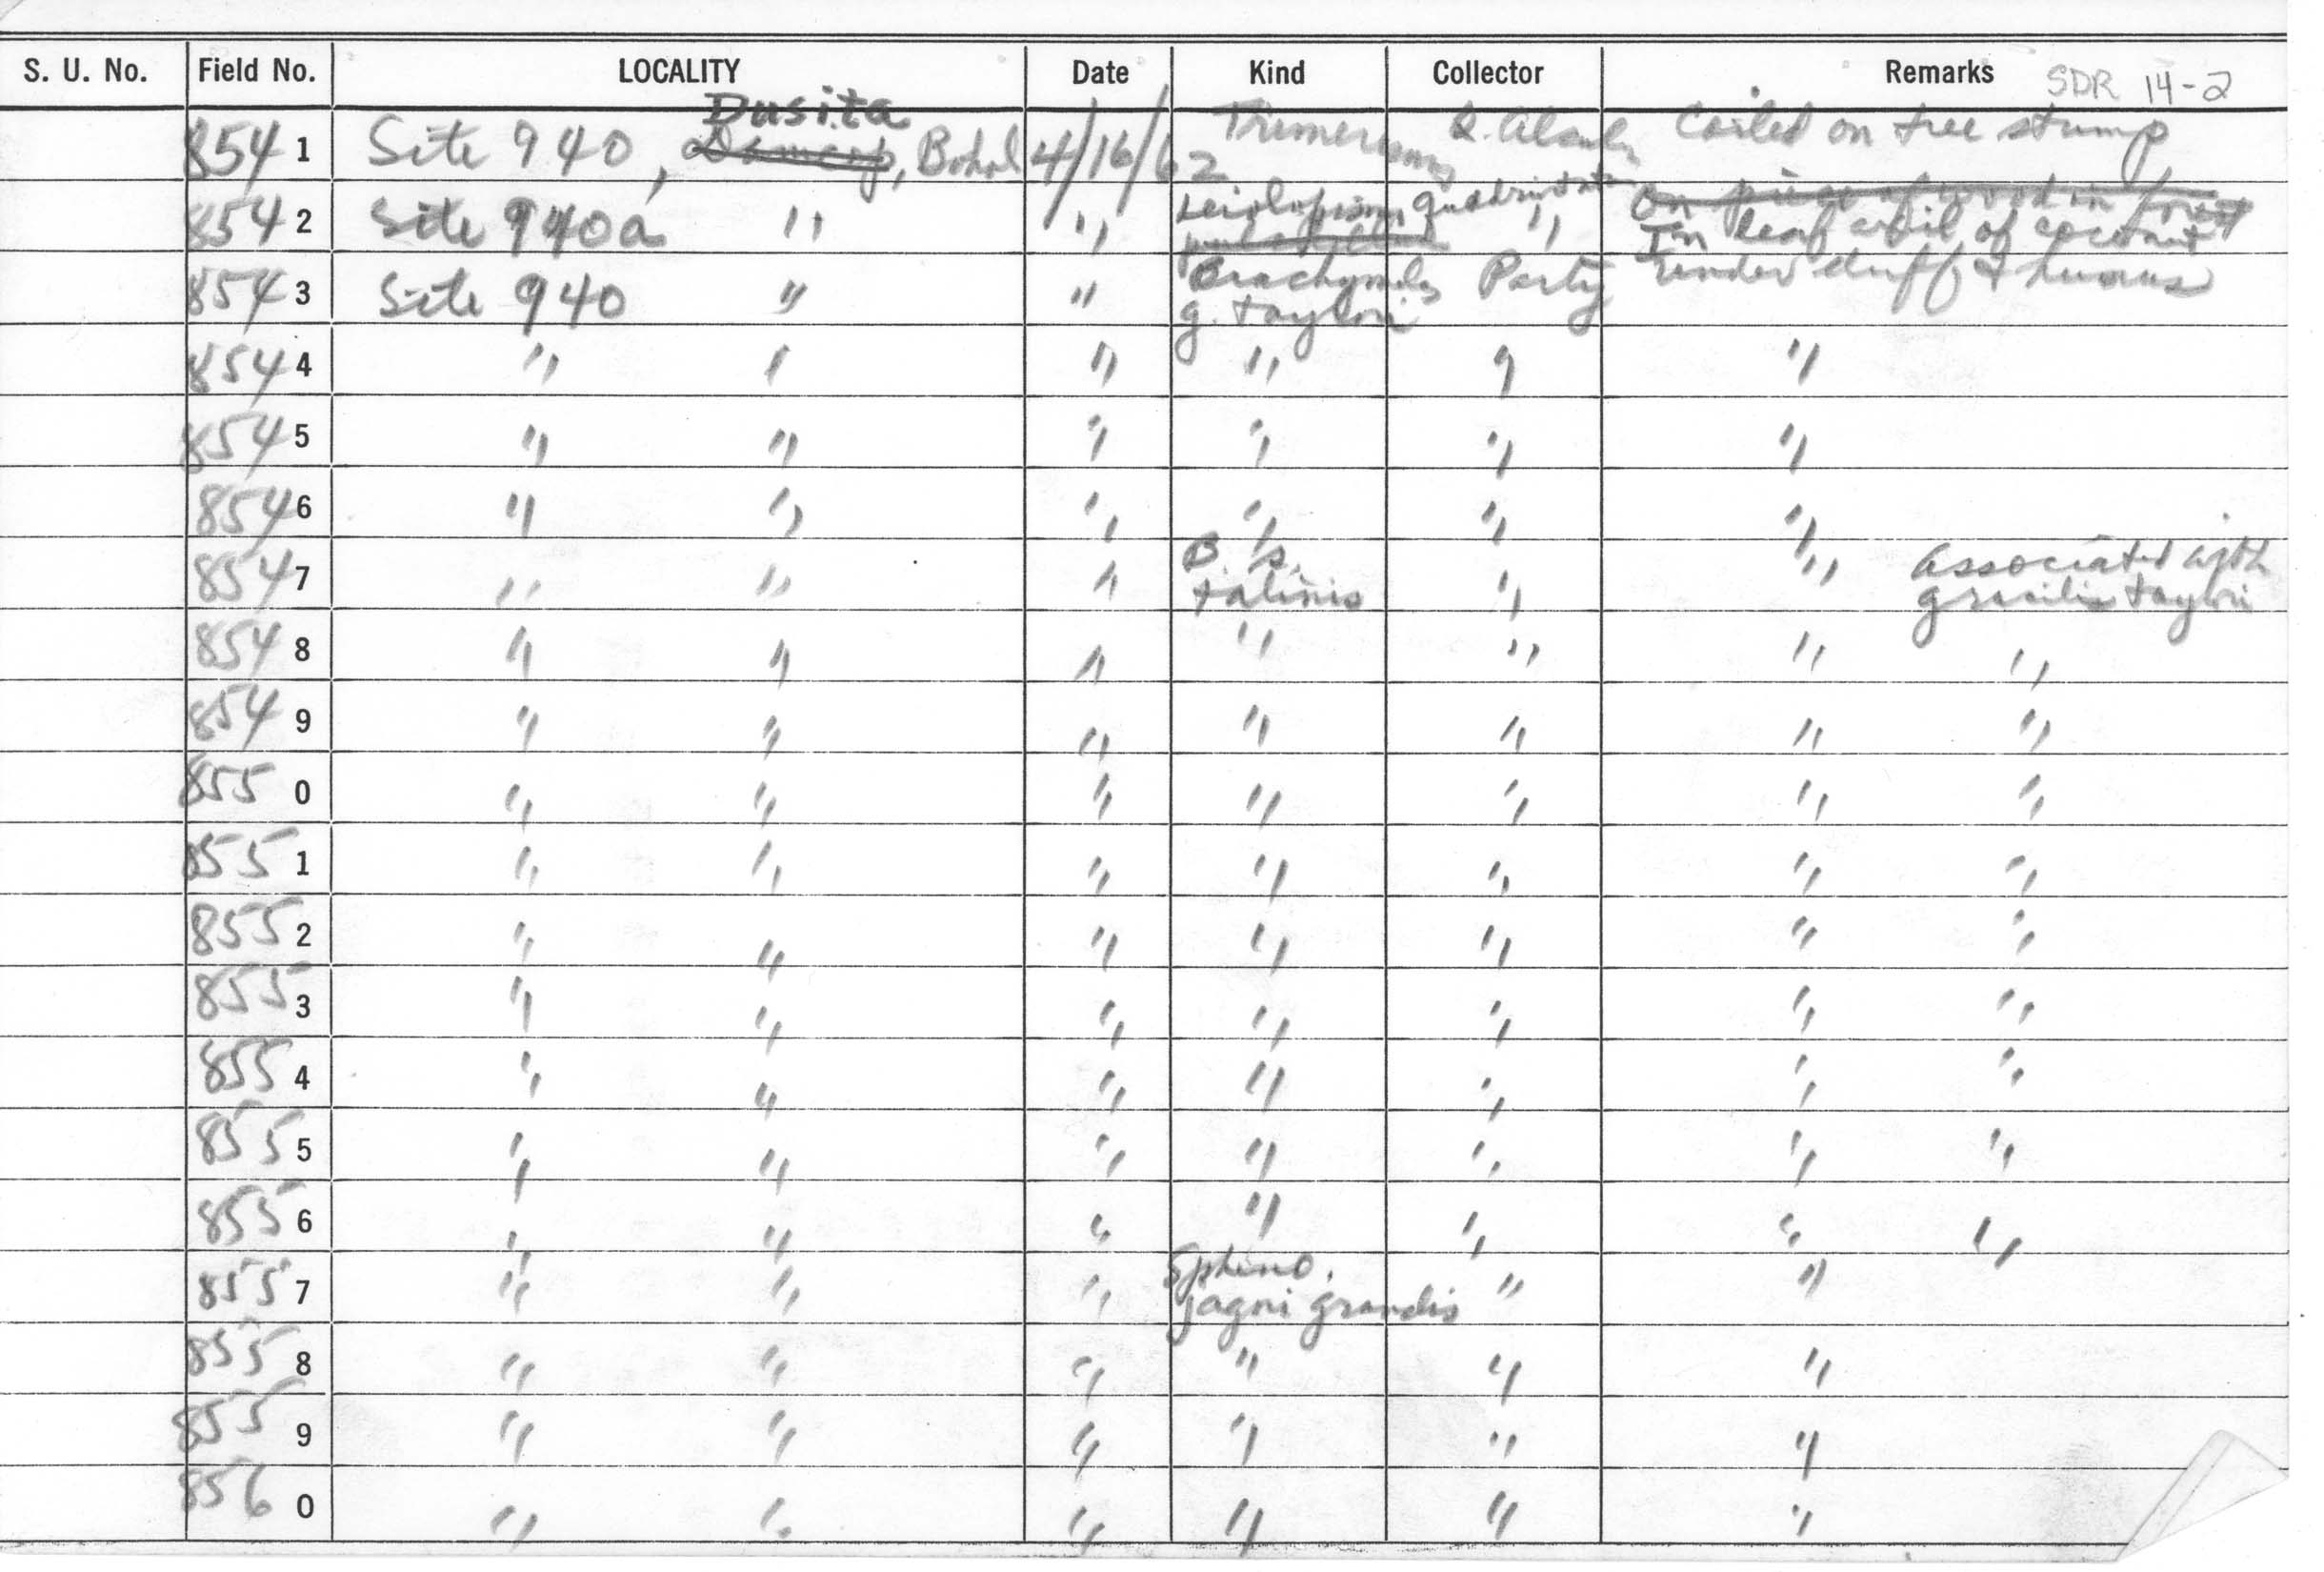 S. U. No. Field No. LOCALITY Date Kind Collector Remarks SDR 14-2
Dusita
8541 Site 940, Bohol 4/16/62 Trimeresurus Q. Alcala Coiled on tree stump
On piece of wood in forest
8542 Site 940a " " Leiolopisma quadrivittata " In leaf axil of coconut
8543 Site 940 " " Brachymeles Party under duff & humus
g. taylori
8544 " " " " " "
8545 " " " " " "
8546 " " " " " "
8547 " " " B. s. " " Associated with
talinis gracilis taylori
8548 " " " " " " "
8549 " " " " " " "
8550 " " " " " " "
8551 " " " " " " "
8552 " " " " " " "
8553 " " " " " " "
8554 " " " " " " "
8555 " " " " " " "
8556 " " " " " " "
8557 " " " Spheno. " "
jagori grandis
8558 " " " " " "
8559 " " " " " "
8560 " " " " " "